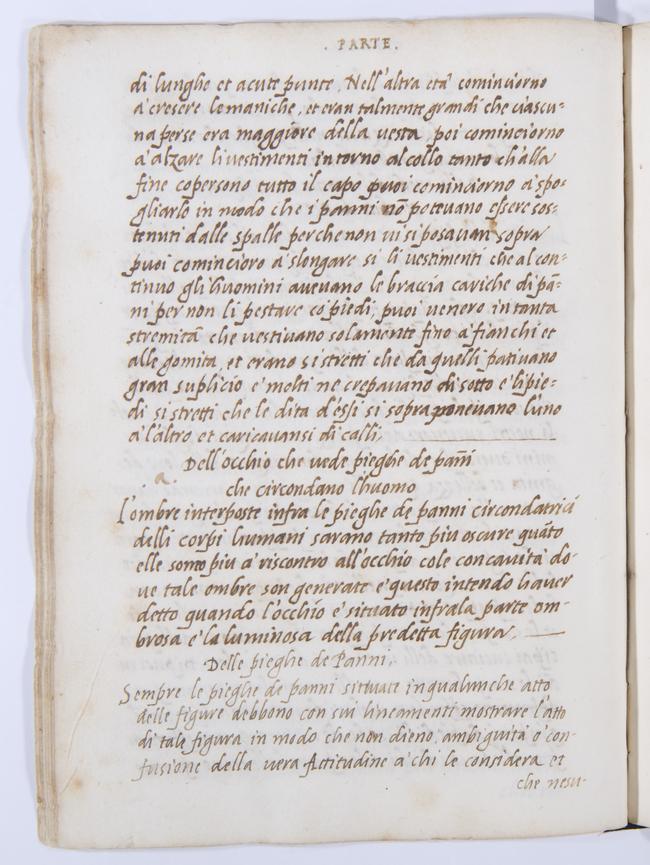 . PARTE .
di lunghe et acute punte, Nell'altra età cominciorno
a' crescre le maniche, et eran talmente grandi che ciascu=
na perse era maggiore della vesta, poi cominciorno
a' alzare li vestimenti intorno al collo tanto ch'alla
fine copersono tutto il capo puoi cominciorno a' spo=
gliarlo in modo che i panni nō potevano essere sos=
tenuti dalle spalle perche non vi si posavan sopra
puoi comincioro a' slongare si li vestimenti che al con=
tinuo gli huomini avevano le braccia cariche di pā=
ni per non li pestare co' piedi, puoi venero in tanta
stremità che vestivano solamente fino a' fianchi et
alle gomita, et erano si stretti che da quelli pativano
gran suplicio e' molti ne crepavano di sotto e' li pie=
di si stretti che le dita d'essi si sopraponevano l'uno
a' l'altro et caricavansi di calli,
Dell'occhio che vede pieghe de pañi
che circondano lhuomo
L'ombre interposte infra le pieghe de panni circondatrici
delli corpi humani sarano tanto piu oscure quāto
elle sono piu a' riscontro all'occhio cole concavità do=
ve tale ombre son generate e' questo intendo haver
detto quando l'occhio e' situato infra la parte om=
brosa e' la luminosa della predetta figura,
Delle pieghe de Panni,
Sempre le pieghe de panni situati in qualunche atto
delle figure debbono con sui lineamenti mostrare l'atto
di tale figura in modo che non dieno ambiguità o' con=
fusione della vera Attitudine a' chi le considera et
che nesu-